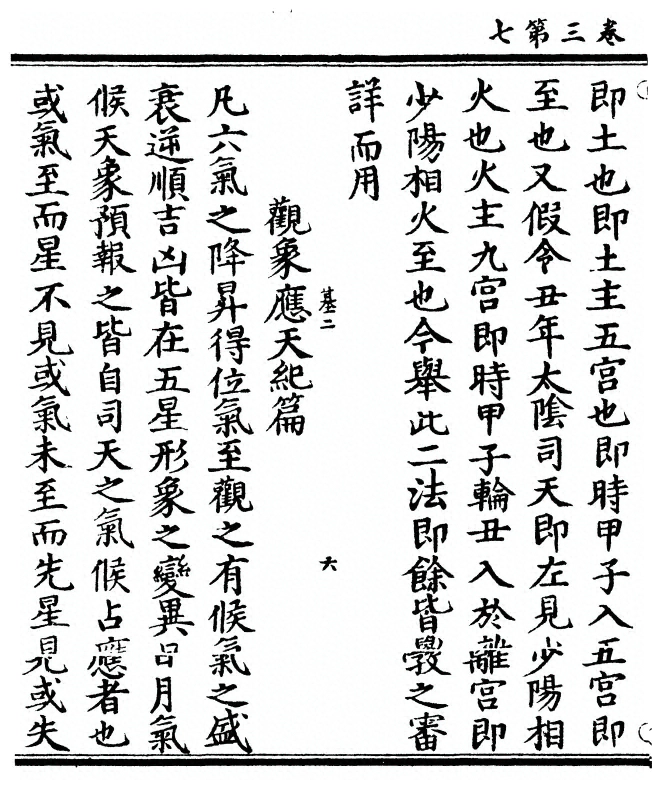 卷三第七
即土也即土主五宮也即時甲子入五宮即
至也又假令丑年太陰司天即左見少陽相
火也火主九宮即時甲子輪丑入於離宮即
少陽相火至也今舉此二法即餘皆斅之審
詳而用
基二
六
觀象應天紀篇
凡六氣之降昇得位氣至觀之有候氣之盛
衰逆順吉凶皆在五星形象之變異日月氣
候天象預報之皆自司天之氣候占應者也
或氣至而星不見或氣未至而先星見或失